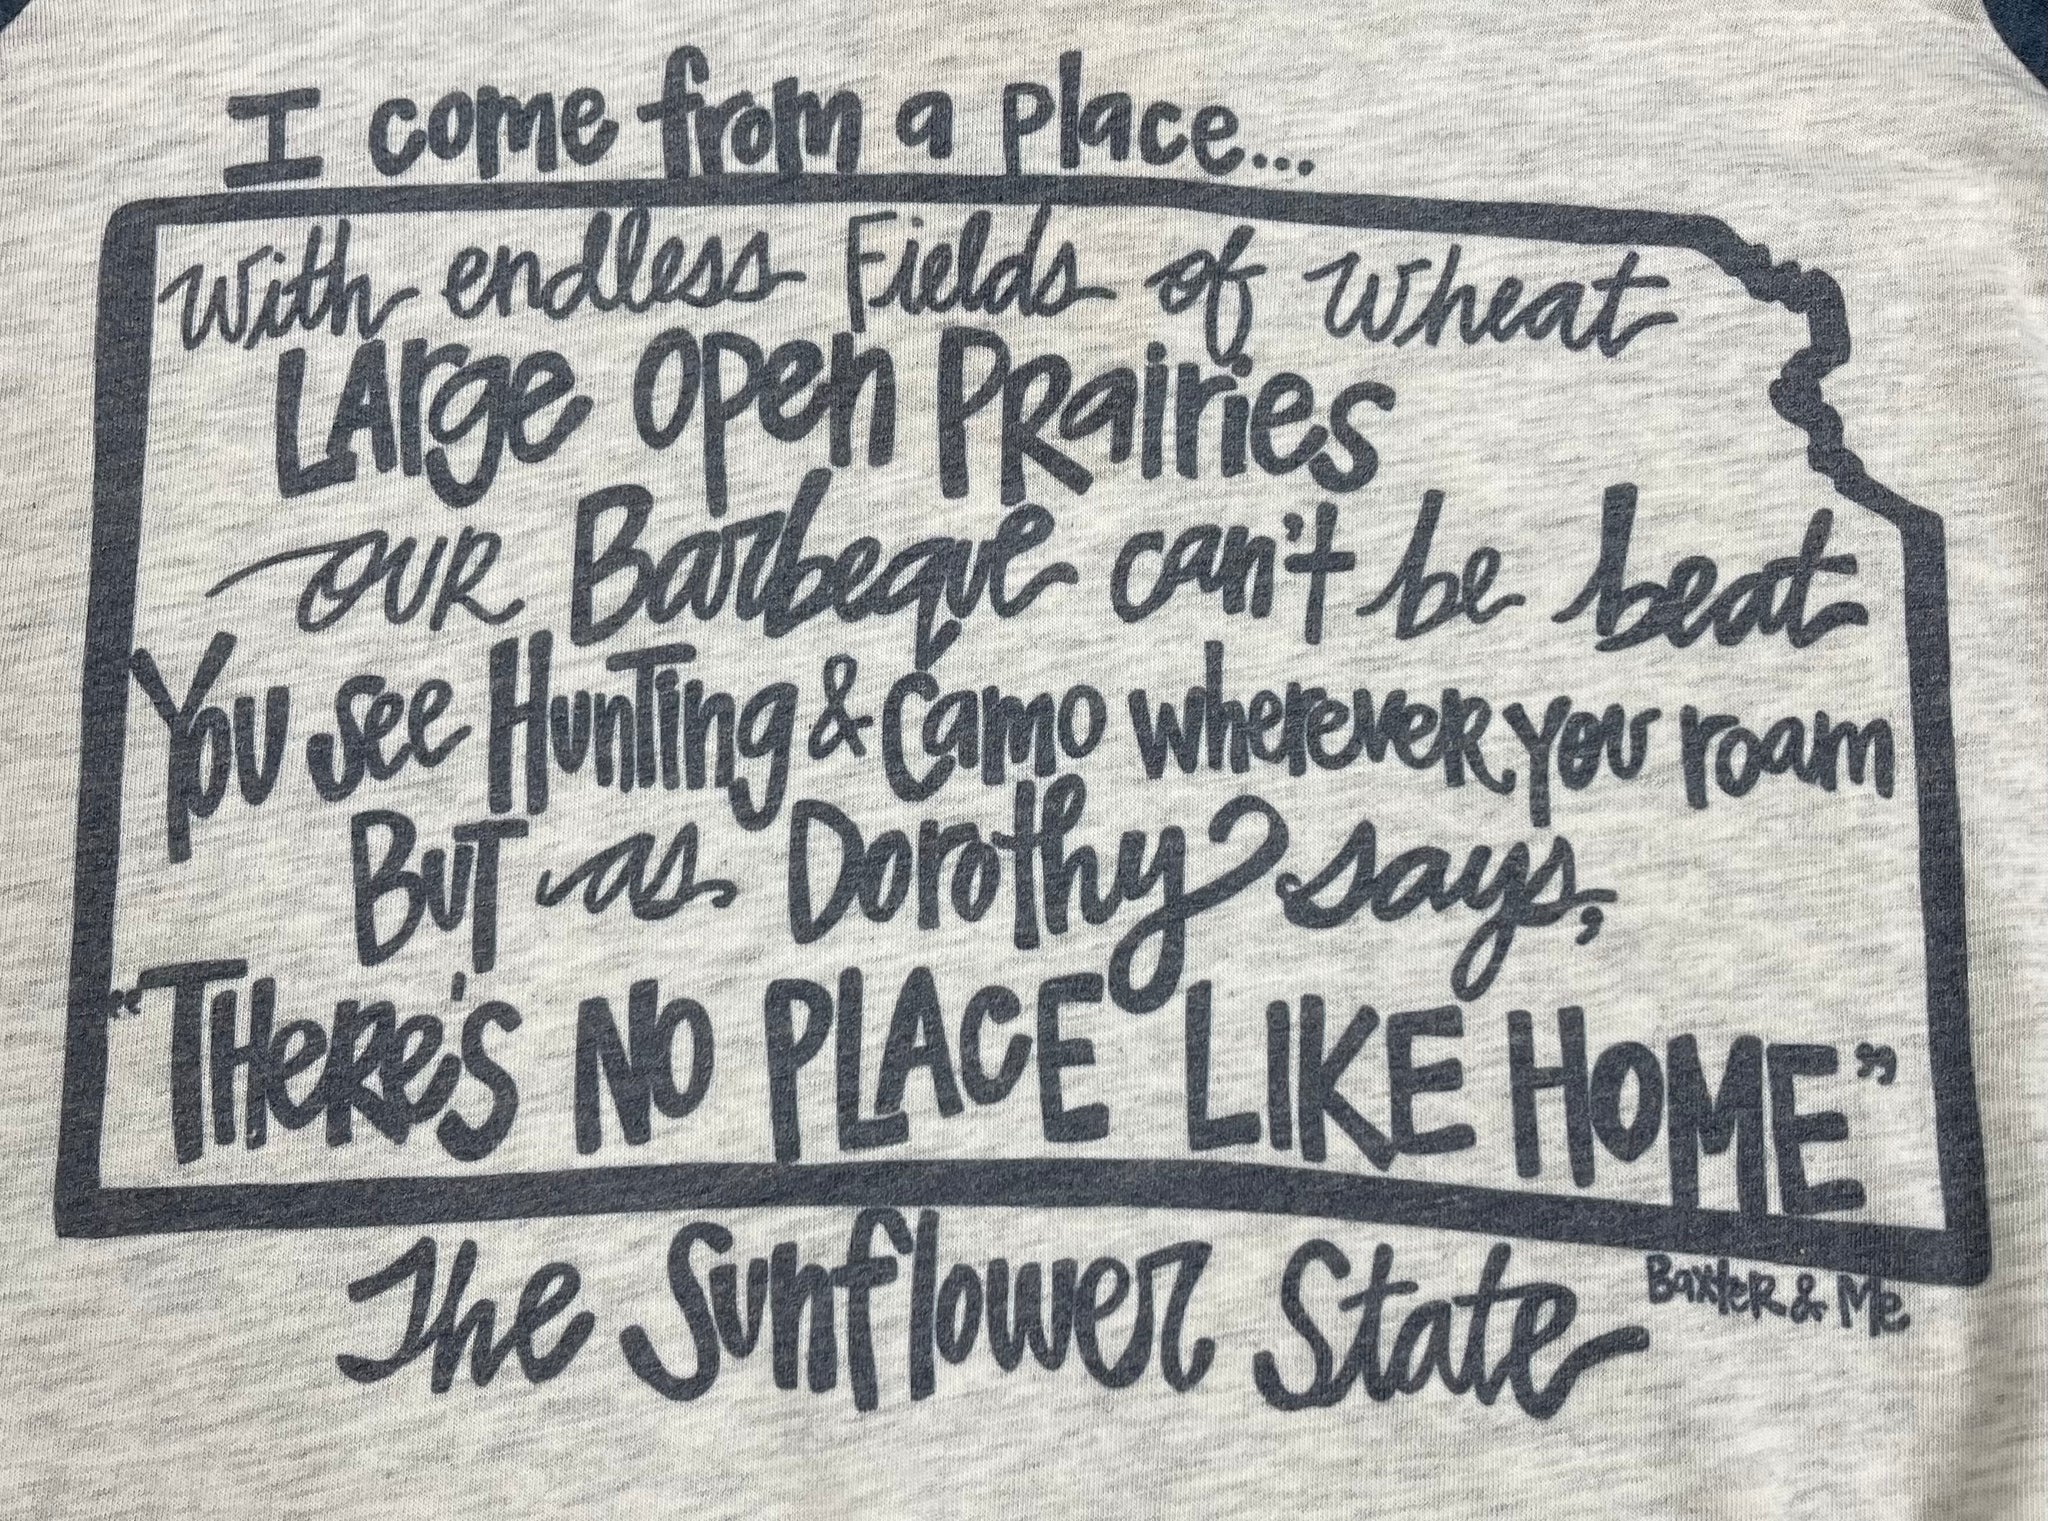 I come from a place...
With endless Fields of Wheat
LArge Open PRairies
OUR Barbeque can't be beat
You see HunTing & Camo wherever you roam
BuT as Dorothy says,
"THeRe's NO PLACE LIKE HOME"
The Sunflower State
BaxteR & Me